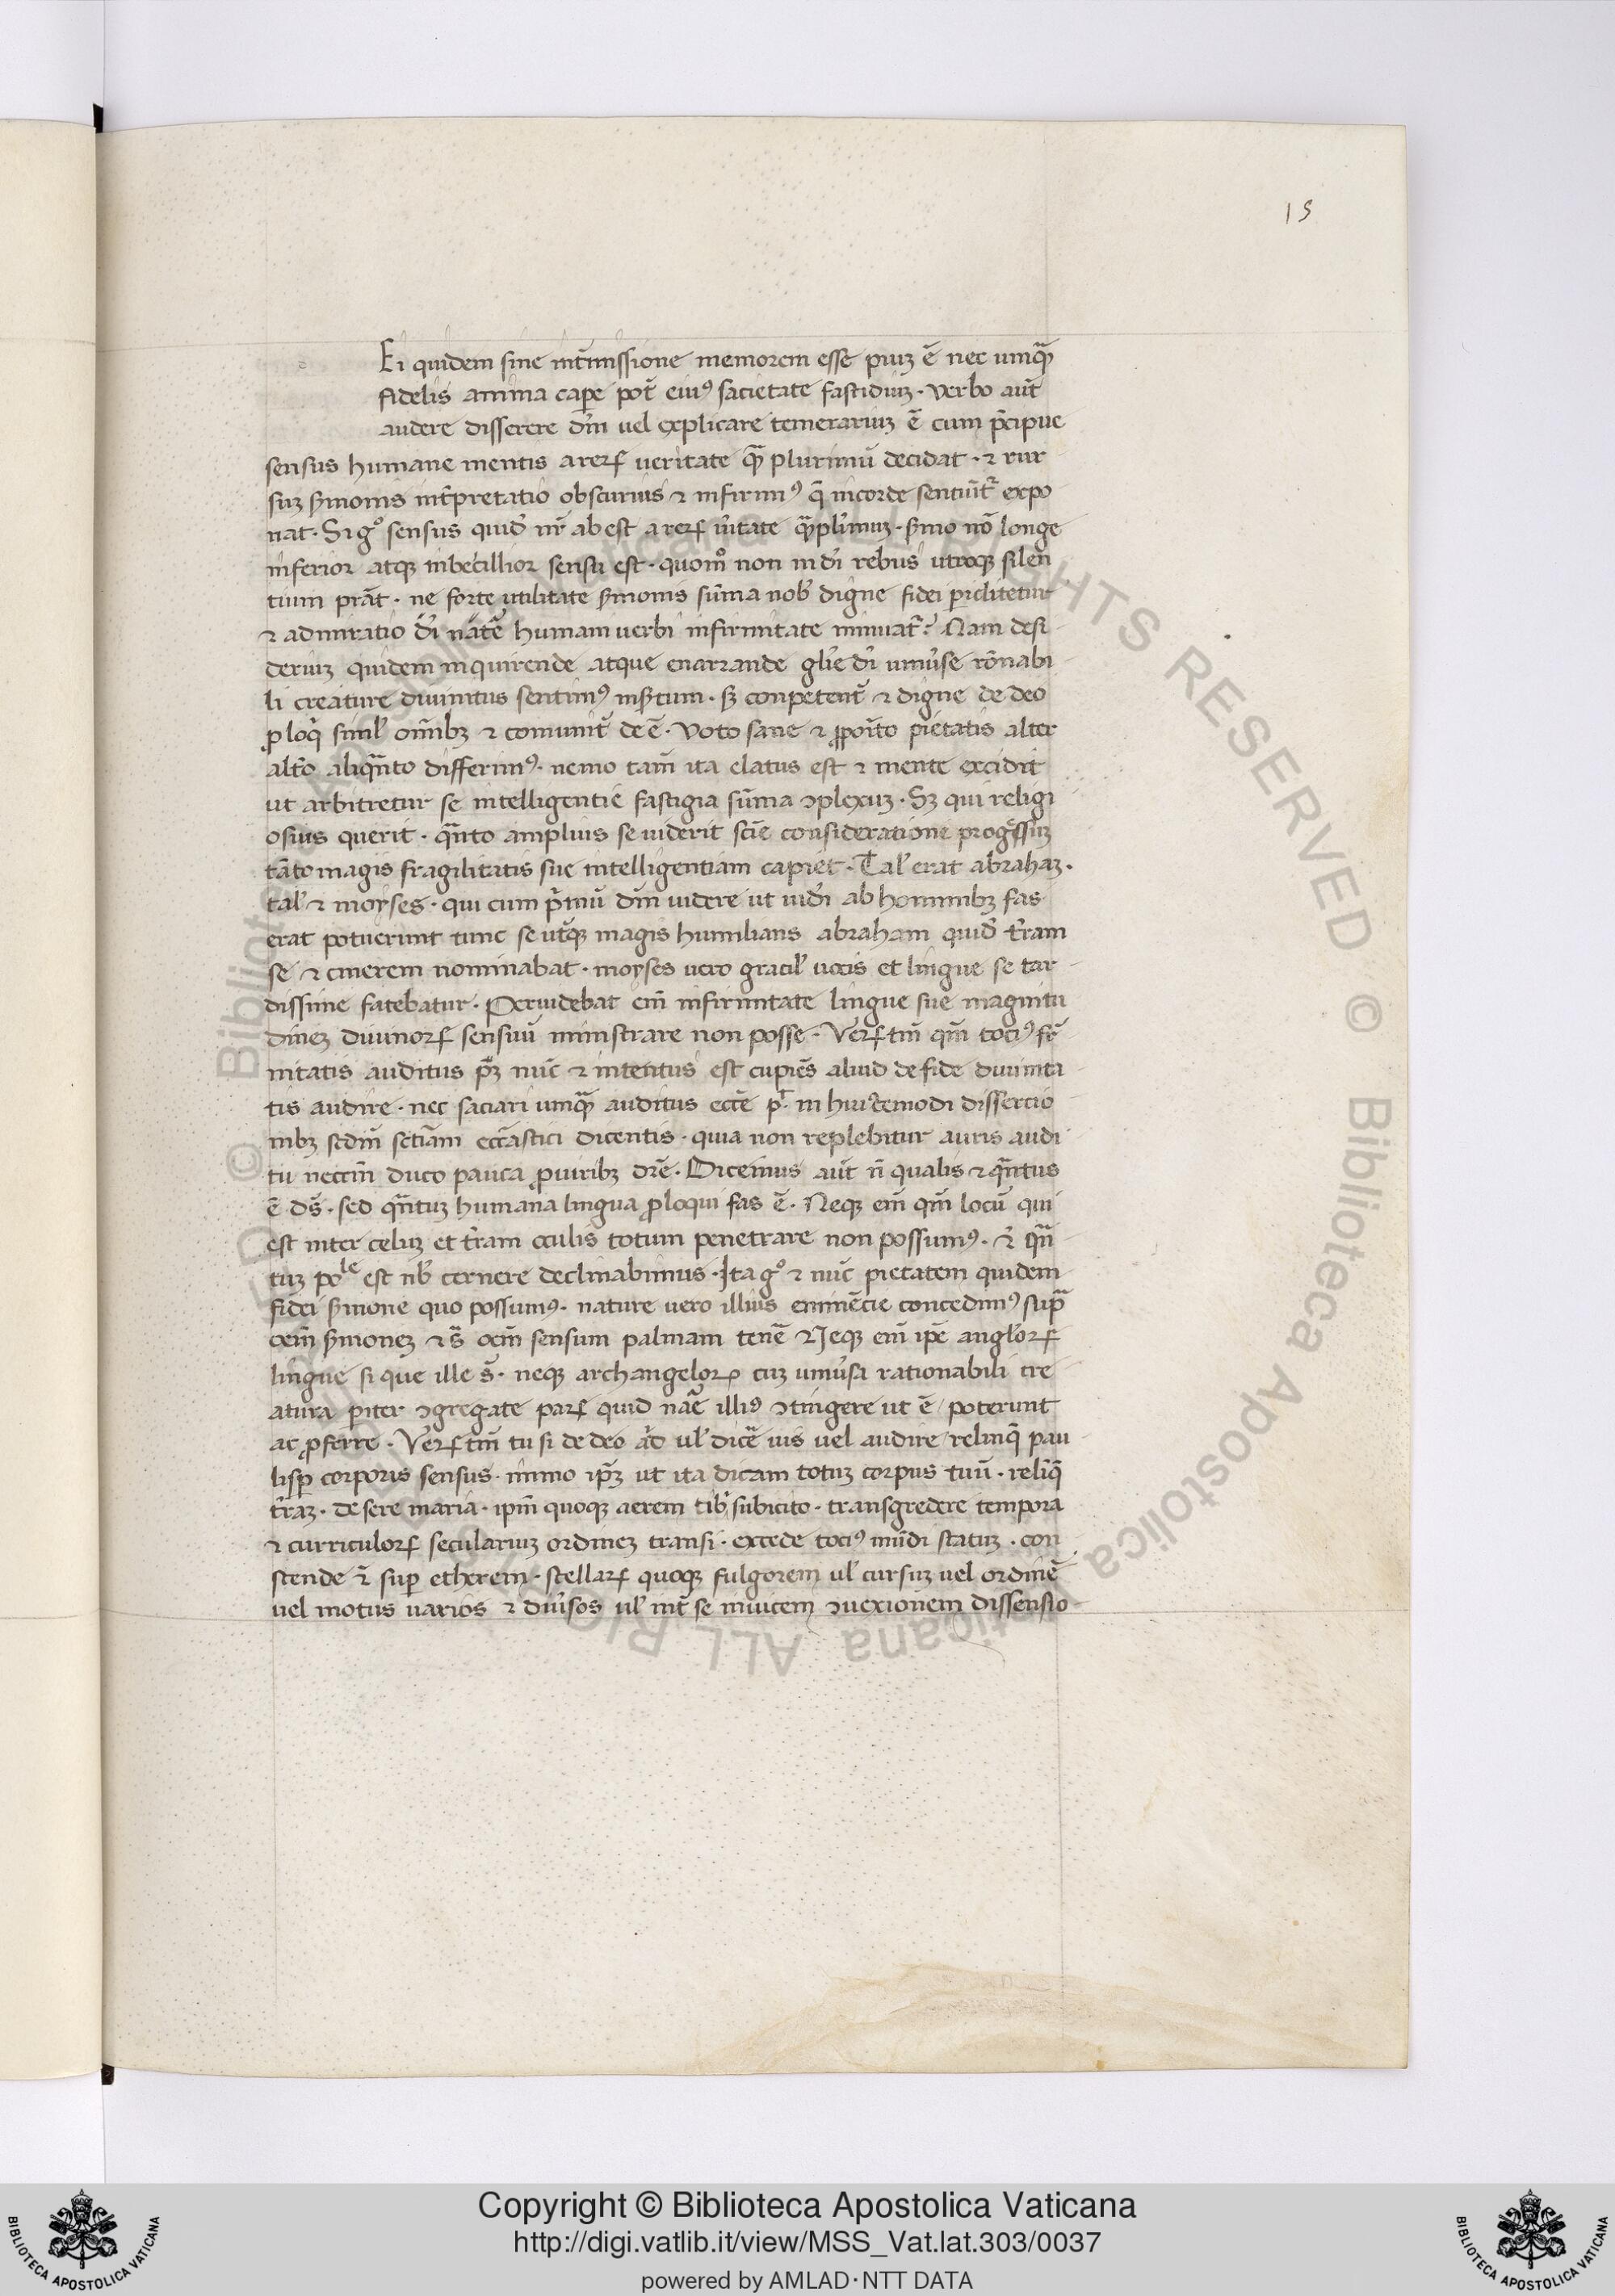 15
Ei quidem sine int̄missione memorem esse piuꝫ ē nec umꝗ̄
fidelis anima caꝑe pot̄ eiuꝰ sacietate fastidiuꝫ · verbo aūt
audere disserere dn̄i uel explicare temerariuꝫ ē cum p̄cipue
sensus humane mentis a rerꝝ ueritate ꝗ̄ plurimū decidat · ⁊ rur
suꝫ ẜmonis int̄pretatio obscurius ⁊ infirmiꝰ q̄ in corde sentiūt᷑ expo
nat · Si gͦ sensus quid̓ nr̄ ab est a rerꝝ ūitate ꝗ̄ plīmuꝫ · ẜmo nō longe
inferior atqꝫ inbecillior sensu est · quomͦ non in dī rebus utroqꝫ silen
tium prāt · ne forte utilitate ẜmonis sūma nob̓ digne fidei ꝑiclitetur
⁊ admiratio dī humani uerbi infirmitate minuat᷑? Nam desi
deriuꝫ quidem inquirende atque enarrande gl̄ie dī uniūse rōnabi
li creature diuinitus sentimꝰ insertum · sꝫ conpetent̄ ⁊ digne de deo
ꝓloq̄ simil̓ omībꝫ ⁊ comunit̄ de ē · Voto sane ⁊ ꝓpoīto pietatis alter
alt̄o aliꝗ̄nto differimꝰ · nemo tam̄ ita elatus est ⁊ mente excidit
ut arbitretur se intelligentie fastigia sūma ꝯplexuꝫ · Sꝫ qui religi
osius querit · ꝗ̄nto amplius se uiderit scīe consideratione progssuꝫ
tāto magis fragilitatis sue intelligentiam capiet · Tal̓ erat abrahaꝫ ·
tal̓ ⁊ moyses · qui cum p̄mū dm̄ uidere ut uid̓i ab hominibꝫ fas
erat potuerunt tunc se ut̄qꝫ magis humilians abraham quid̓ t̄ram
se ⁊ cinerem nominabat · moyses uero gracil̓ uocis et lingue se tar
dissime fatebatur · Peruidebat em̄ infirmitate lingue sue magnitu
dineꝫ diuinorꝝ sensuū ministrare non posse · Verꝝtm̄ qm̄ tociꝰ fr̄
nitatis auditus nūc ⁊ intentus est cupiēs aliud de fide diuinita
tis audire · nec saciari umꝗ̄ auditus eccē pt̄ · in huiꝰcemodi dissertio
nibꝫ scdm̄ sntiam eccl̄astici dicentis · quia non replebitur auris audi
tu dico pauca ꝓ uiribꝫ · Dicemus aūt n̄ qualis ⁊ ꝗ̄ntus
ē ds̄ · sed ꝗ̄ntuꝫ humana lingua ꝓloqui fas ē · Neqꝫ em̄ qm̄ locū qui
est inter celuꝫ et t̄ram oculis totum penetrare non possumꝰ · ꝗ̄n
tuꝫ poˡᵉ est nb̓ cernere declinabimus · Ita gͦ ⁊ nūc pietatem quidem
fidei ẜmone quo possumꝰ · nature uero illius eminēcie concedimꝰ sup̄
oēm̄ ẜmoneꝫ ⁊ s̄ oēm̄ sensum palmam tenē Neqꝫ em̄ ip̄e angl̓orꝝ
lingue si que ille s̄ · neqꝫ archangelorꝝ cuꝫ uniūsa rationabili cre
atura ꝑiter ꝯgregate parꝝ quid nāe illiꝰ ꝯtingere ut ē / poterunt
ac ꝓferre · Verꝝtm̄ tu si de deo ul̓ dicē uis uel audire / relinq̄ pau
lisꝑ corporis sensus · immo ip̄ꝫ ut ita dicam totuꝫ corpus tuū · reliq̄
t̄raꝫ · desere maria · ipm̄ quoqꝫ aerem tib̓ subicito · transgredere tempora
⁊ curriculorꝝ seculariuꝫ ordineꝫ transi · excede tociꝰ mūdi statuꝫ · con
scende suꝑ etherem · stellarꝝ quoqꝫ fulgorem ul̓ cursuꝫ uel ordinē
uel motus uarios ⁊ diūsos ul̓ int̄ se inuicem ꝯuexionem dissensio
Copyright © Biblioteca Apostolica Vaticana
http://digi.vatlib.it/view/MSS_Vat.lat.303/0037
powered by AMLAD · NTT DATA
BIBLIOTECA APOSTOLICA VATICANA
BIBLIOTECA APOSTOLICA VATICANA